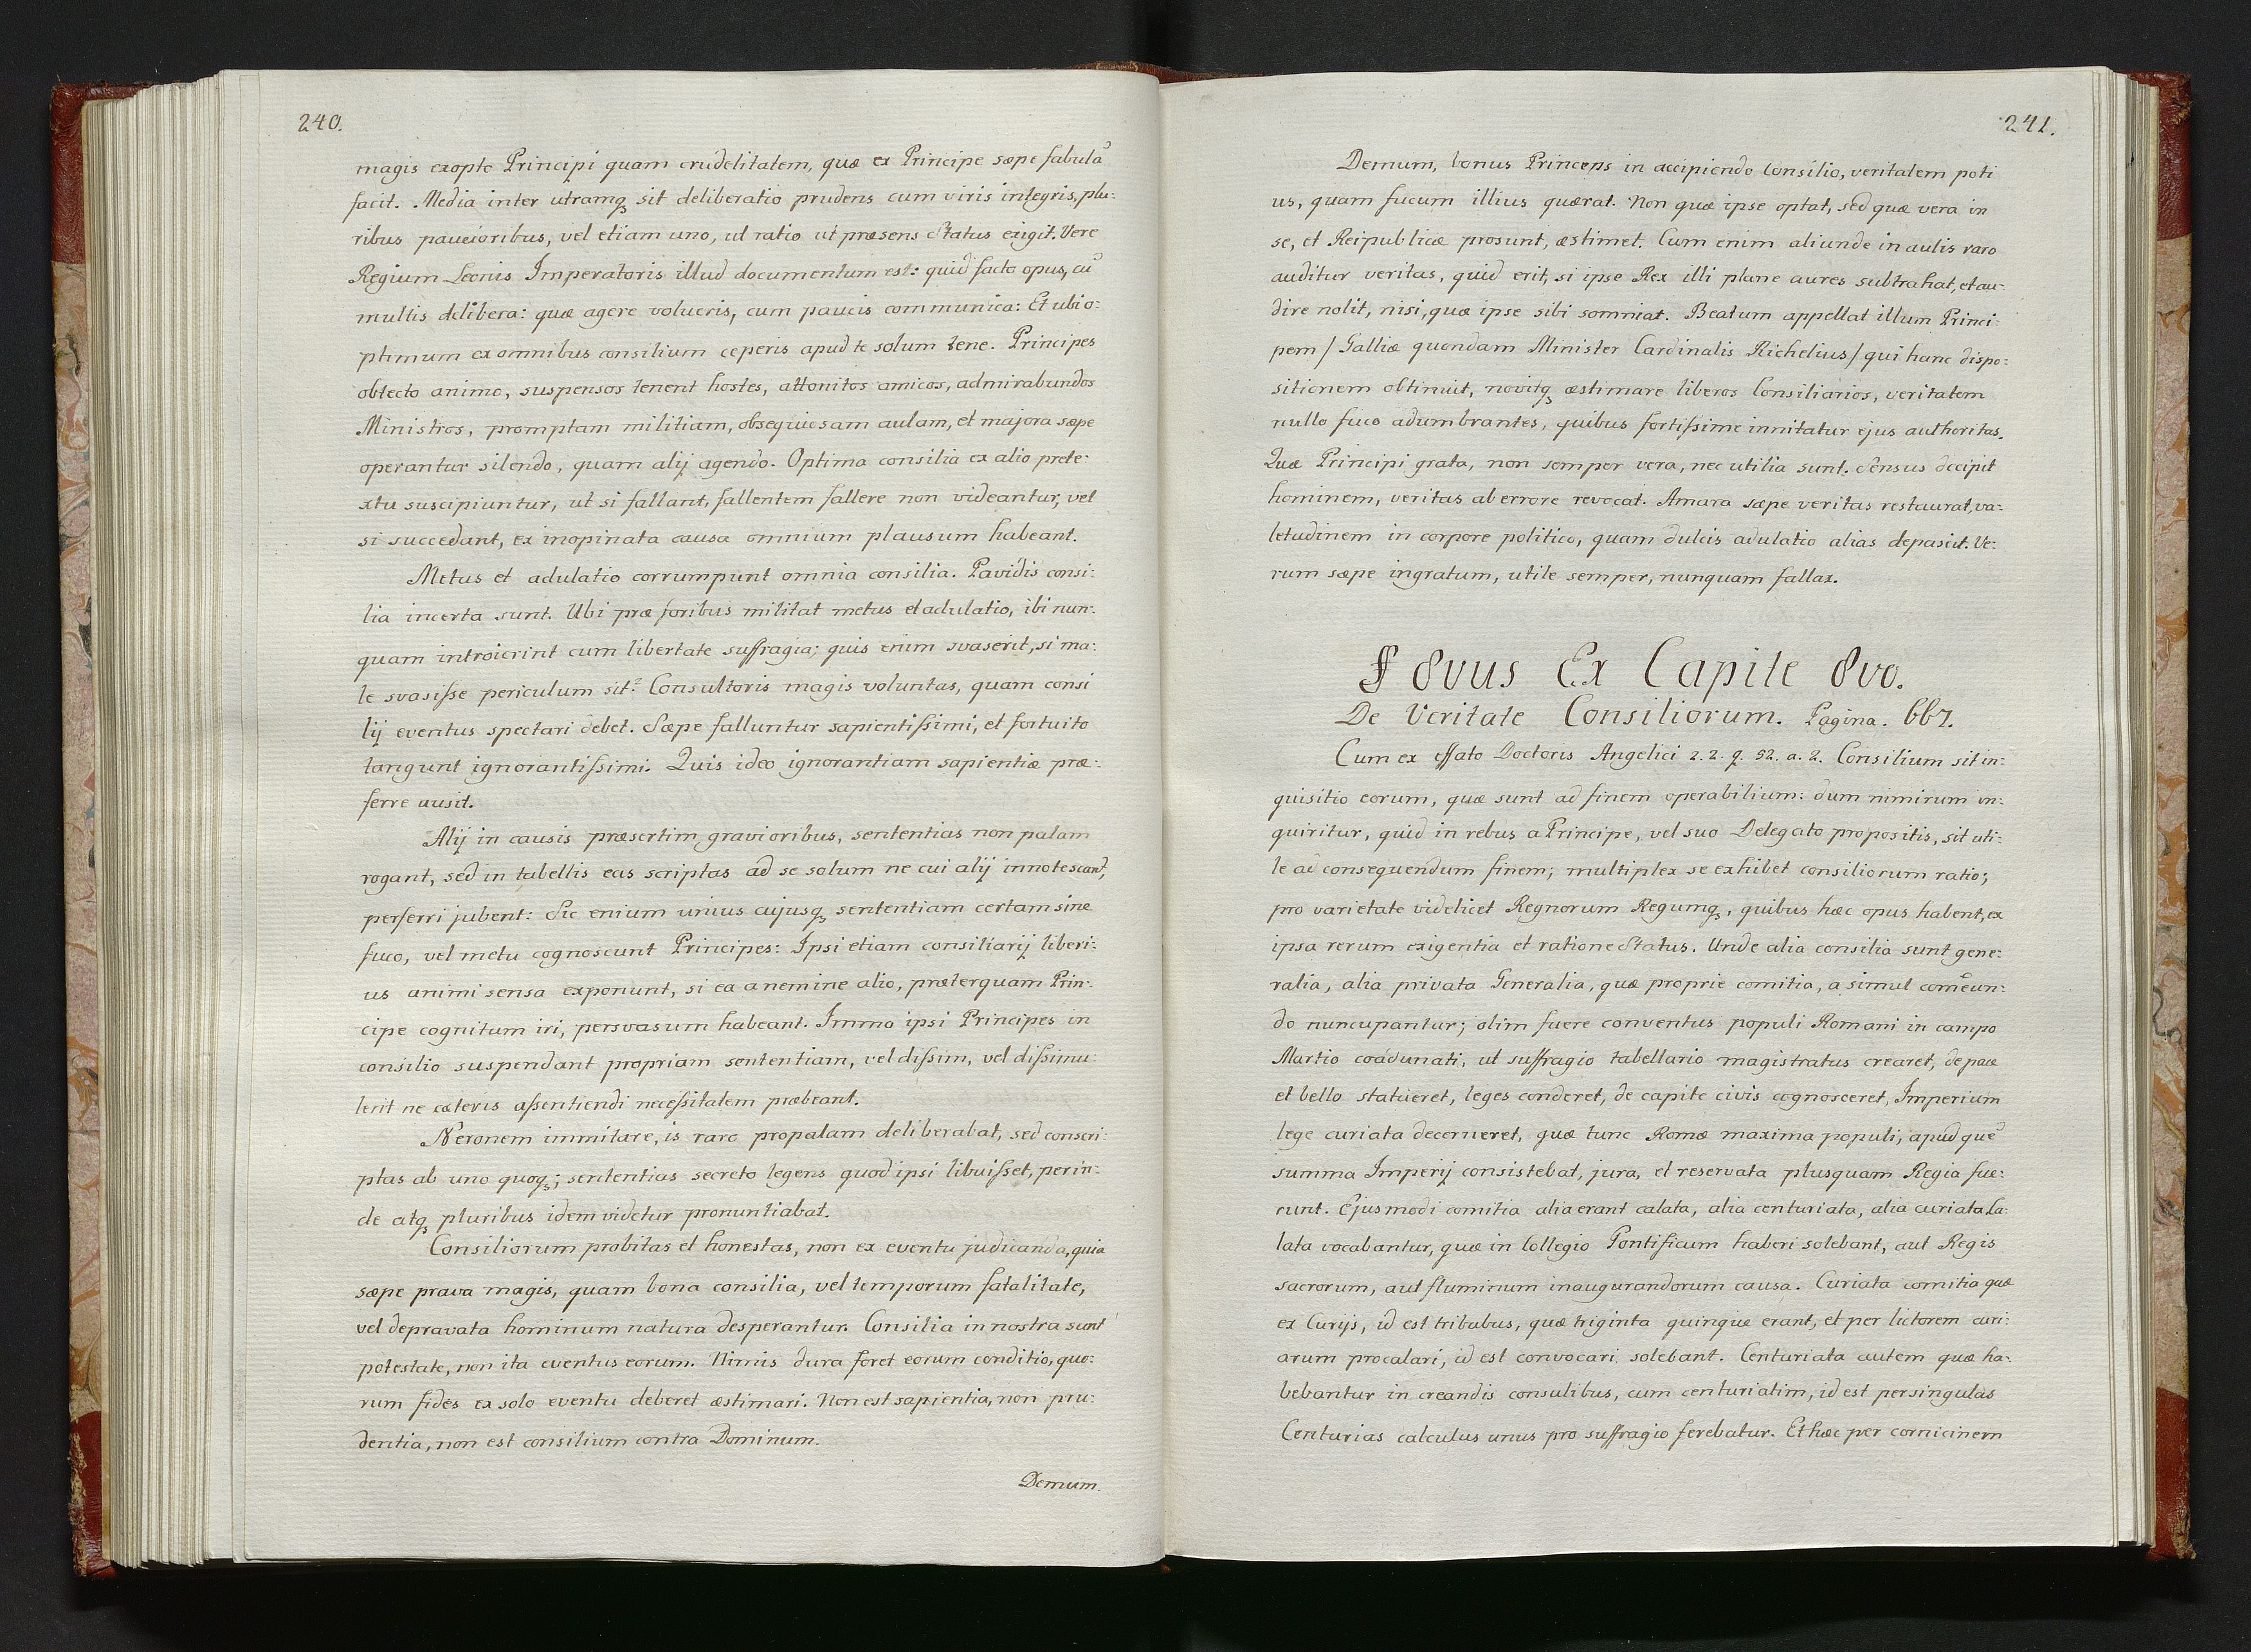 240.
magis exopto Principi quam crudelitatem, quæ ex Principe sæpe fabulã
facit. Media inter utramqꝫ sit deliberatio prudens cum viris integris, plu:
ribus paucioribus, vel etiam uno, ut ratio ut præsens Status exigit. Vere
Regium Leonis Imperatoris illud documentum est: quid facto opus, cũ
multis delibera: quæ agere volueris, cum paucis communica: Et ubi o:
ptimum ex omnibus consilium ceperis apud te solum tene. Principes
obtecto animo, suspensos tenent hostes, attonitos amicos, admirabundos
Ministros, promptam militiam, obsequiosam aulam, et majora sæpe
operantur silendo, quam alij agendo. Optima consilia ex alio prete:
xtu suscipiuntur, ut si fallant, fallentem fallere non videantur, vel
si succedant, ex inopinata causa omnium plausum habeant.
Metus et adulatio corrumpunt omnia consilia. Pavidis consi:
lia incerta sunt. Ubi præ foribus militat metus et adulatio, ibi nun:
quam introierint cum libertate suffragia; quis enim svaserit, si ma:
le svasisse periculum sit? Consultoris magis voluntas, quam consi
lij eventus spectari debet. Sæpe falluntur sapientissimi, et fortuito
tangunt ignorantissimi. Quis ideo ignorantiam sapientiæ præ:
ferre ausit.
Alij in causis præsertim gravioribus, sententias non palam
rogant, sed in tabellis eas scriptas ad se solum ne cui alij innotescant,
perferri jubent: Sic enium unius cujusqꝫ sententiam certam sine
fuco, vel metu cognoscunt Principes: Ipsi etiam consiliarij liberi:
us animi sensa exponunt, si ea a nemine alio, præterquam Prin:
cipe cognitum iri, persvasum habeant. Immo ipsi Principes in
consilio suspendant propriam sententiam, vel dissim, vel dissimu:
lent ne cæteris assentiendi necessitatem præbeant.
Neronem immitare, is raro propalam deliberabat, sed conscri:
ptas ab uno quoqꝫ; sententias secreto legens quod ipsi libuisset, perin:
de atqꝫ pluribus idem videtur pronuntiabat.
Consiliorum probitas et honestas, non ex eventu judicanda, quia
sæpe prava magis, quam bona consilia, vel temporum fatalitate,
vel depravata hominum natura desperantur. Consilia in nostra sunt
potestate, non ita eventus eorum. Nimis dura foret eorum conditio, quo:
rum fides ex solo eventu deberet æstimari. Non est sapientia, non pru:
dentia, non est consilium contra Dominum.
Demum.
241.
Demum, bonus Princeps in accipiendo Consilio, veritatem poti
us, quam fucum illius quærat. Non quæ ipse optat, sed quæ vera in
se, et Reipublicæ prosunt, æstimet. Cum enim aliunde in aulis raro
auditur veritas, quid erit, si ipse Rex illi plane aures subtrahat, et au:
dire nolit, nisi, quæ ipse sibi somniat. Beatum appellat illum Princi:
pem / Galliæ quondam Minister Cardinalis Richelius / qui hanc dispo:
sitionem obtinuit, novitqꝫ æstimare liberos Consiliarios, veritatem
nullo fuco adumbrantes, quibus fortissime innitatur ejus authoritas.
Quæ Principi grata, non semper vera, nec utilia sunt. Sensus decipit
hominem, veritas ab errore revocat. Amara sæpe veritas restaurat, va:
letudinem in corpore politico, quam dulcis adulatio alias depascit. Ve:
rum sæpe ingratum, utile semper, nunquam fallax.
§ 8vus Ex Capite 8vo.
De Veritate Consiliorum. Pagina. 667.
Cum ex effato Doctoris Angelici 2. 2. q. 52. a. 2. Consilium sit in:
quisitio eorum, quæ sunt ad finem operabilium: dum nimirum in:
quiritur, quid in rebus a Principe, vel suo Delegato propositis, sit uti:
le ad consequendum finem; multiplex se exhibet consiliorum ratio;
pro varietate videlicet Regnorum Regumqꝫ, quibus hæc opus habent, ex
ipsa rerum exigentia et ratione Status. Unde alia consilia sunt gene:
ralia, alia privata Generalia, quæ proprie comitia, a simul comẽun:
do nuncupantur; olim fuere conventus populi Romani in campo
Martio coadunati, ut suffragio tabellario magistratus crearet, de pace
et bello statueret, leges conderet, de capite civis cognosceret, Imperium
lege curiata decerneret, quæ tunc Romæ maxima populi, apud quẽ
summa Imperij consistebat, jura, et reservata plusquam Regia fue:
runt. Ejusmodi comitia alia erant calata, alia centuriata, alia curiata Ca:
lata vocabantur, quæ in Collegio Pontificum haberi solebant, aut Regis
sacrorum, aut fluminum inaugurandorum causa. Curiata comitia quæ
ex Curijs, id est tribubus, quæ triginta quinque erant, et per lictorem curi:
arum procalari, id est convocari solebant. Centuriata autem quæ ha:
bebantur in creandis consulibus, cum centuriatim, id est per singulas
Centurias calculus unus pro suffragio ferebatur. Et hæc per cornicinem